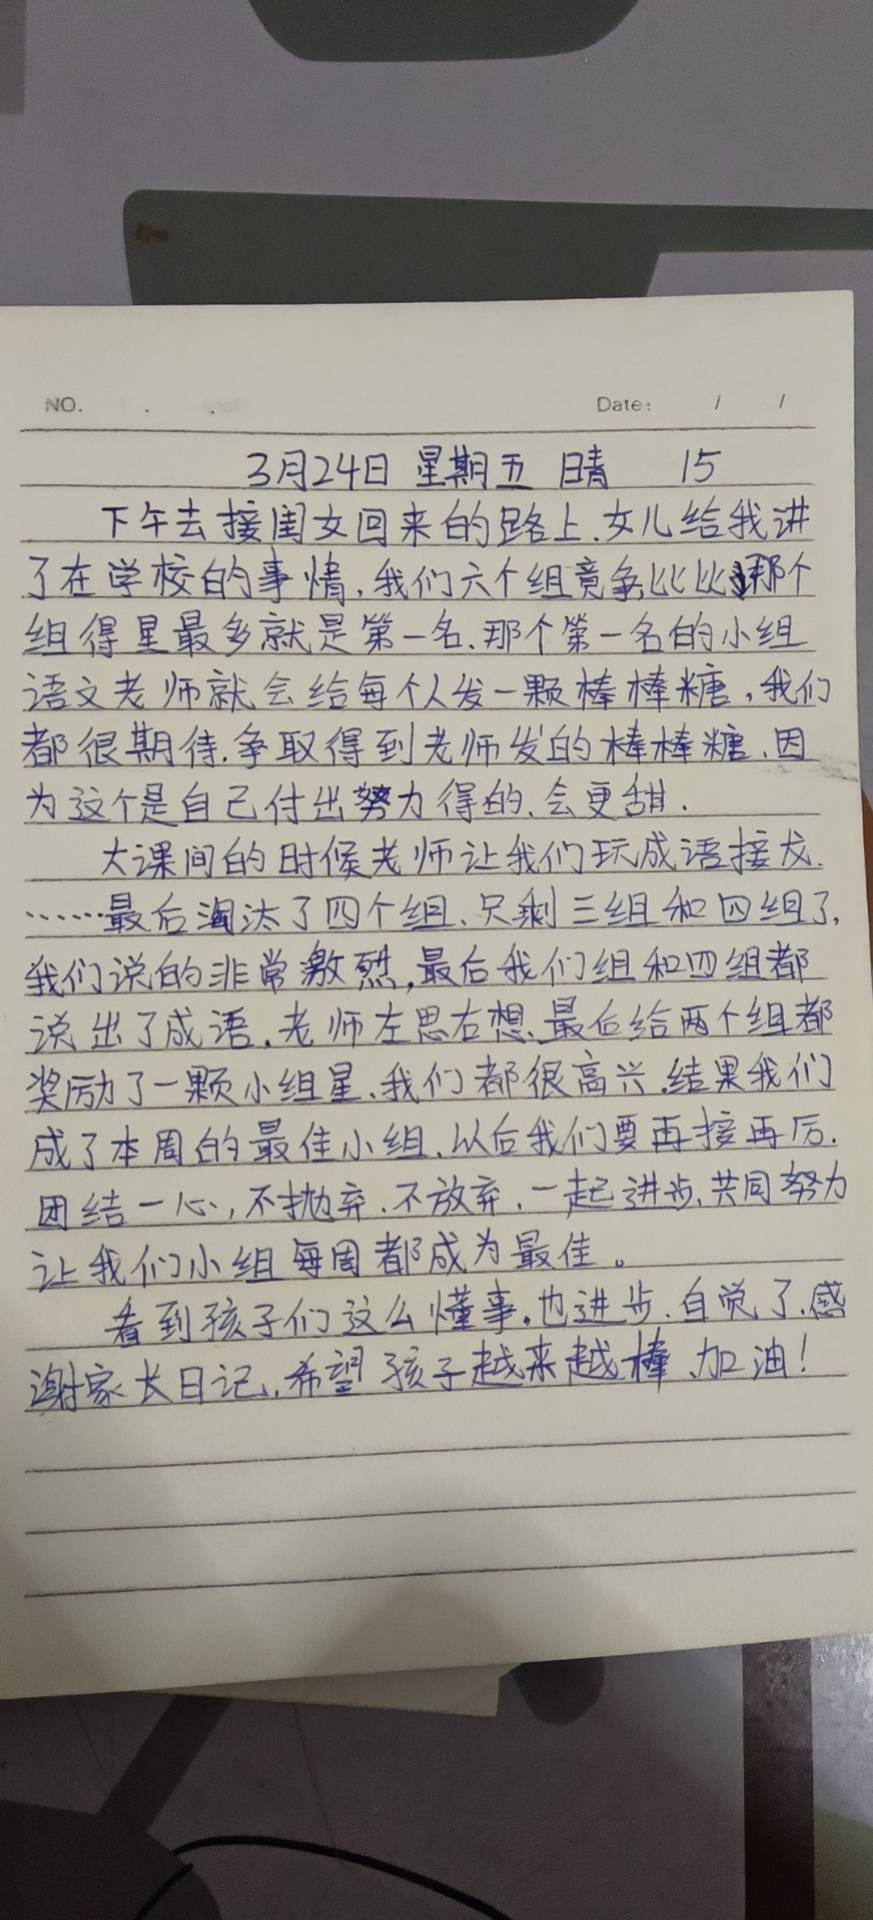 NO.
Date: / /
3月24日 星期五 晴 15
下午去接闺女回来的路上.女儿给我讲
了在学校的事情,我们六个组竟争比比那个
组得星最多就是第一名.那个第一名的小组
语文老师就会给每个人发一颗棒棒糖,我们
都很期待.争取得到老师发的棒棒糖.因
为这个是自己付出努力得的.会更甜.
大课间的时候老师让我们玩成语接龙.
……最后淘汰了四个组、只剩三组和四组了,
我们说的非常激烈,最后我们组和四组都
说出了成语.老师左思右想.最后给两个组都
奖励了一颗小组星.我们都很高兴.结果我们
成了本周的最佳小组.以后我们要再接再厉.
团结一心,不抛弃.不放弃.一起进步、共同努力
让我们小组每周都成为最佳。
看到孩子们这么懂事.也进步.自觉了.感
谢家长日记,希望孩子越来越棒.加油!